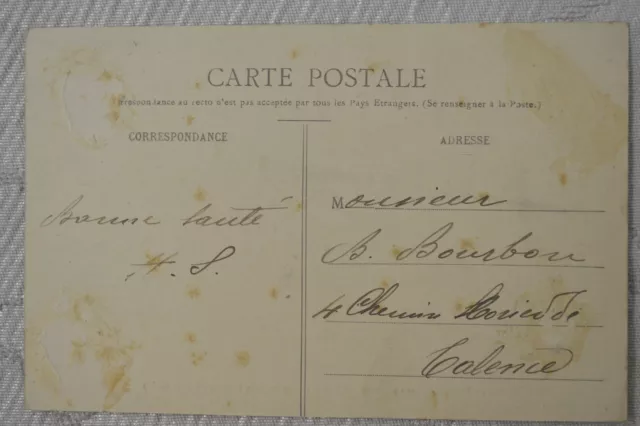 CARTE POSTALE
Correspondance au verso n'est pas acceptée par tous les Pays Étrangers. (Se renseigner à la Poste.)
CORRESPONDANCE
ADRESSE
Bonne santé
H. S.
Monsieur
B. Bourbon
4 Chemin de
Talence